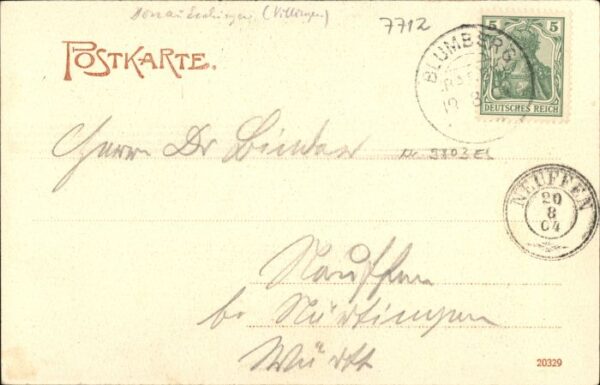 Donaueschingen (Villingen)
7712
POSTKARTE.
BLUMBERG
19 8
5 5
DEUTSCHES REICH
Herrn Dr Binder
Nr. 5803 EL
NEUFFEN
20
8
04
Neuffen
b. Nürtingen
Württ
20329